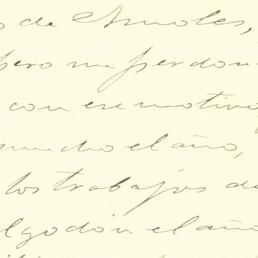 s de Anoles,
pero me perdon
con ese motivo
mucho el año,
los trabajos de
lgodón el año